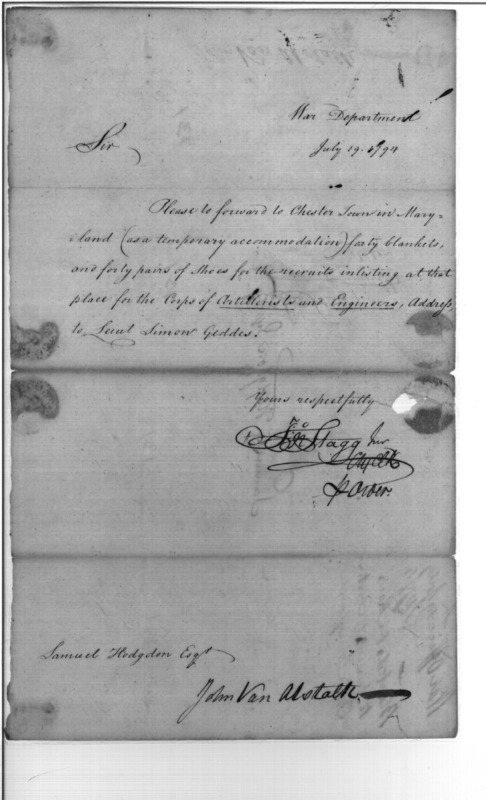 War Department
July 19. 1794
Sir
Please to forward to Chester Town in Mary=
=land (as a temporary accommodation) forty blankets,
and forty pairs of Shoes for the recruits inlisting at that
place for the Corps of Artillerists and Engineers, Address,
to Lieut Simon Geddes.
Yours respectfully
Jno Stagg Jnr
Ch. Clk
Samuel Hodgdon Esqr
John Van Alstalk